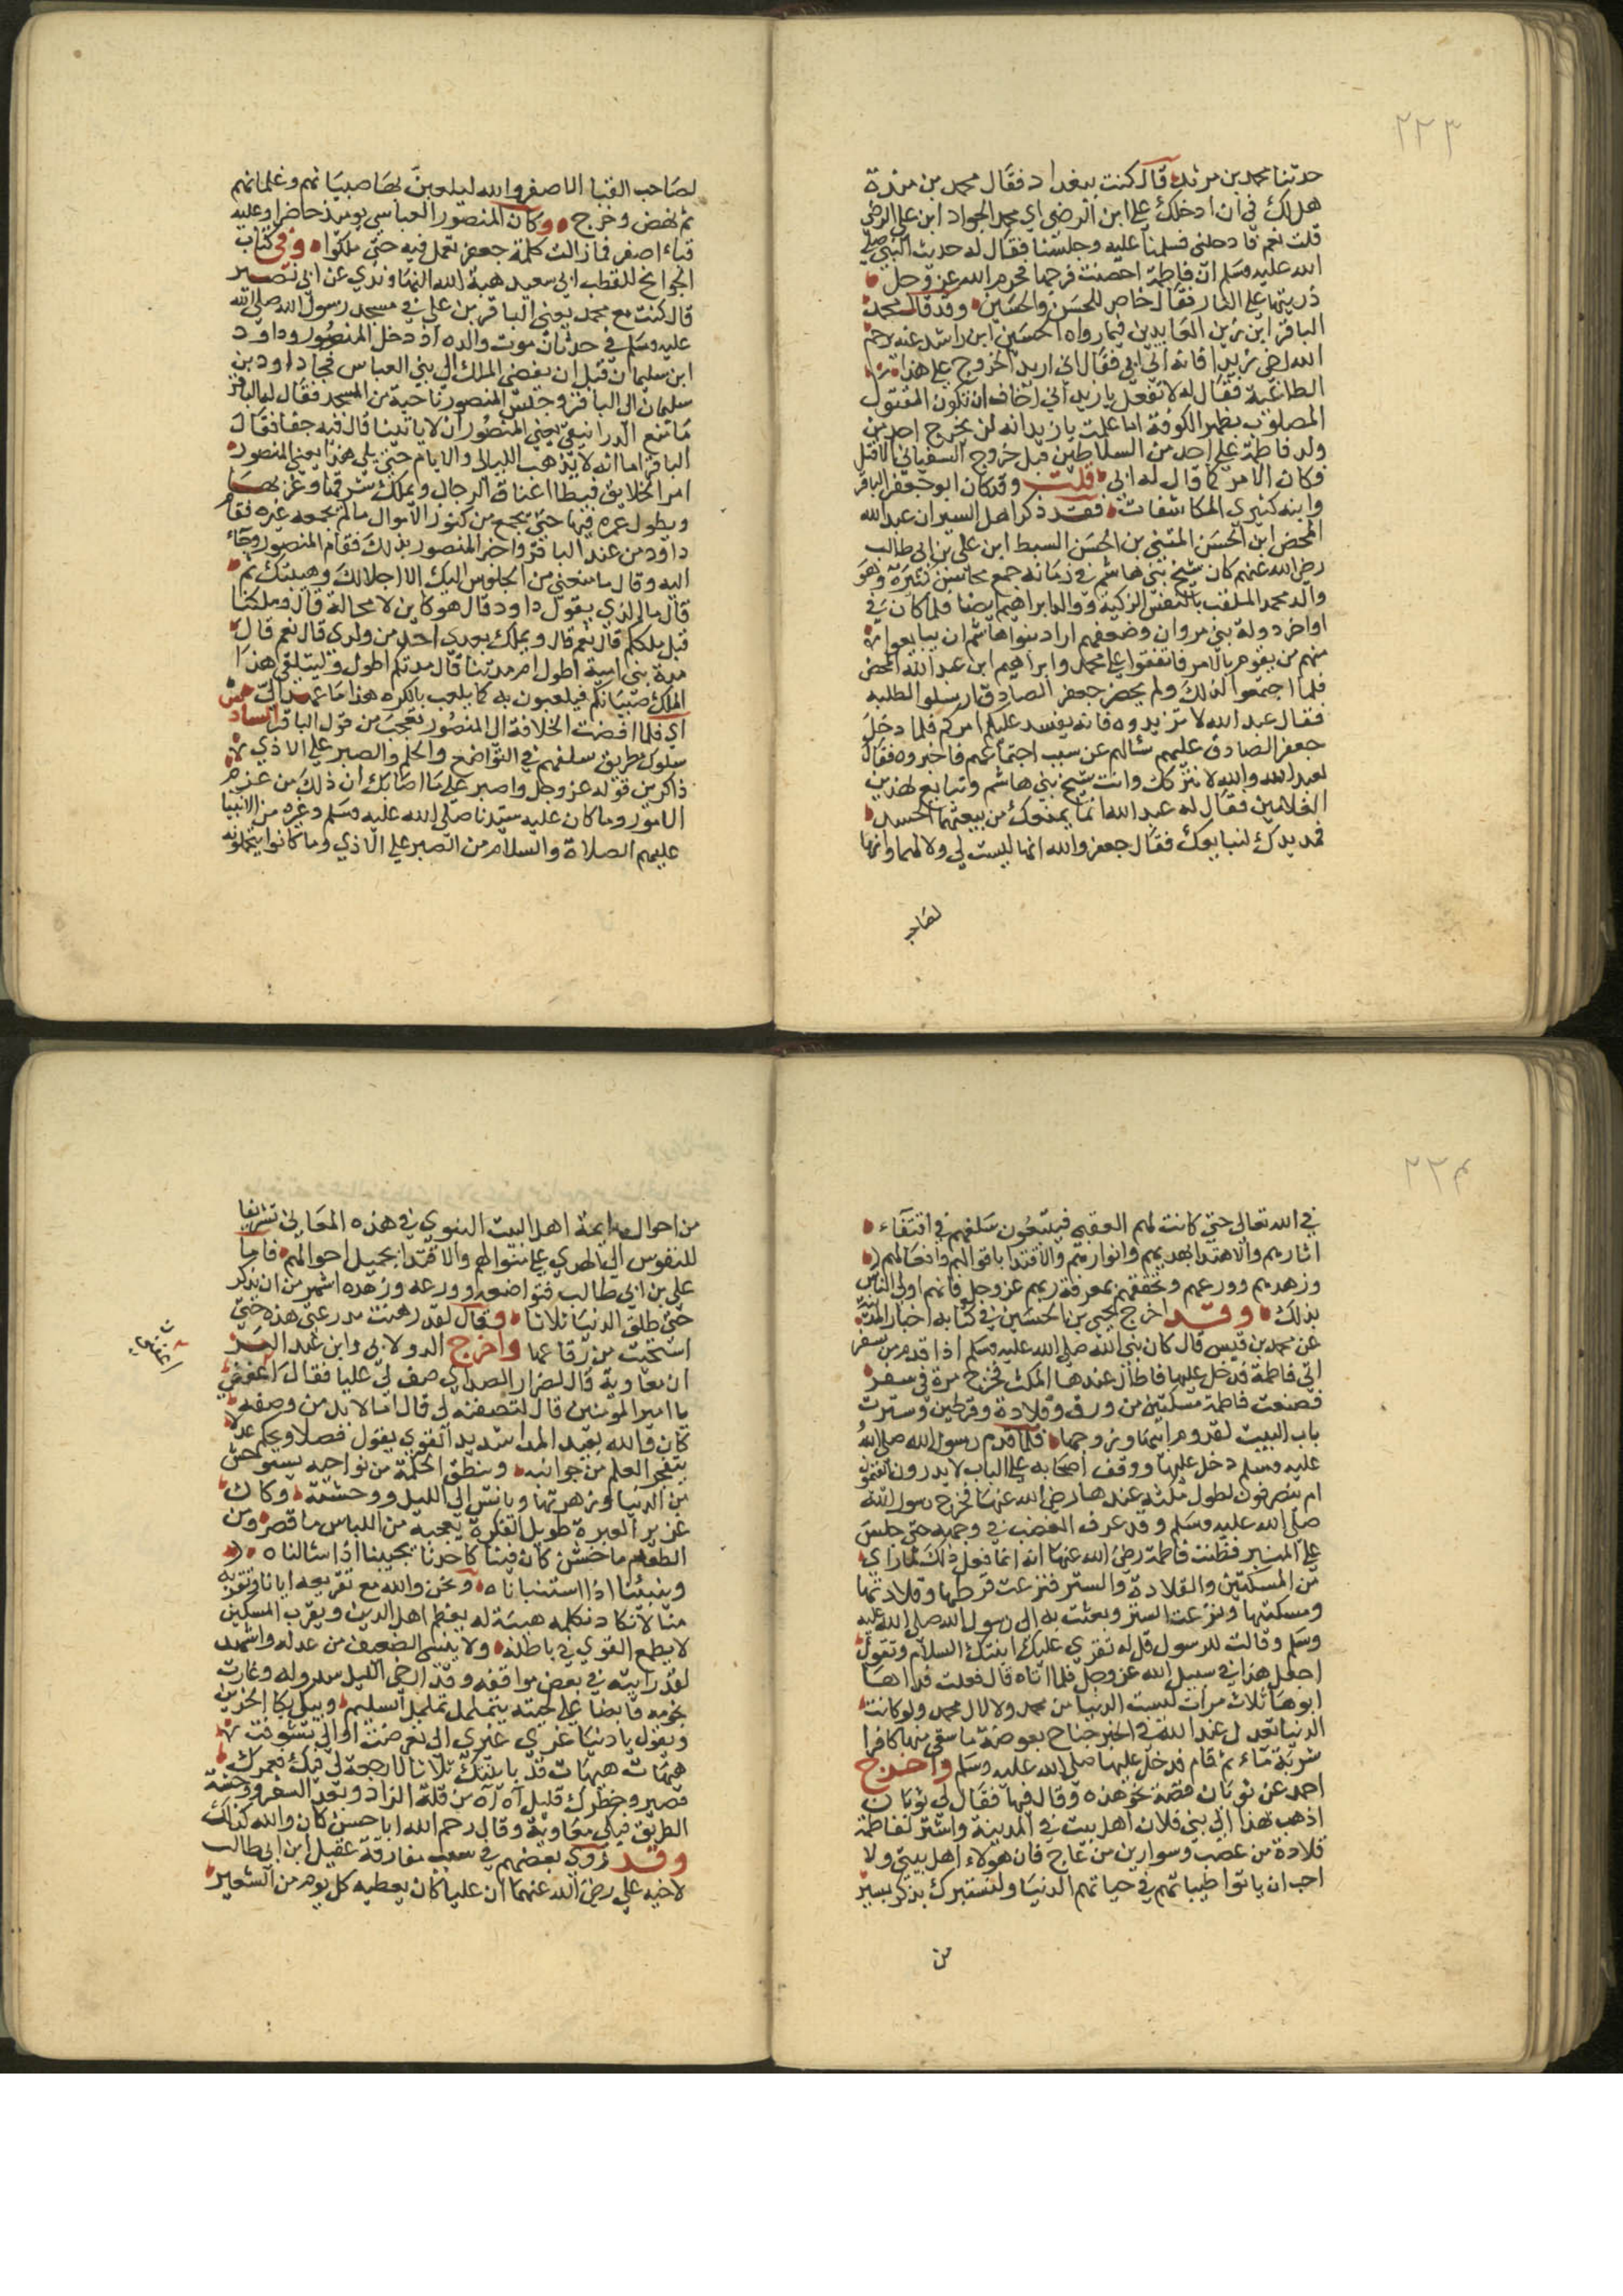 ٢٢٣
حدثنا محمد بن مرثد قال كنت ببغداد فقال محمد بن منده
هل لك في ان ادخلك على ابن الرضى اي محمد الجواد ابن على الرضى
قلت نعم فادخلني فسلمنا عليه وجلسنا فقال له حديث النبي صلى
الله عليه وسلم ان فاطمة احصنت فرجها فحرم الله عز وجل
ذريتها على النار فقال خاص للحسن والحسين وقد قال محمد
الباقر ابن زين العابدين فيما رواه الحسين ابن راشد عنه رحم
الله اخي زيدا فانه اتى ابي فقال اني اريد الخروج على هذا
الطاغية فقال له لا تفعل يا زيد اني اخاف ان تكون المقتول
المصلوب بظهر الكوفة اما علمت يا زيد انه لن يخرج احد من
ولد فاطمة على احد من السلاطين قبل خروج السفياني الا قتل
فكان الامر كما قال له ابي قلت وقد كان ابو جعفر الباقر
وابنه كثيري المكاشفات فقد ذكر اهل السير ان عبد الله
المحض ابن الحسن المثنى بن الحسن السبط ابن على بن ابي طالب
رضى الله عنهم كان شيخ بني هاشم في زمانه جمع محاسن كثيرة وهو
والد محمد الملقب بالنفس الزكية ووالد ابراهيم ايضا فلما كان في
اواخر دولة بني مروان وضعفهم اراد بنوا هاشم ان يبايعوا
منهم من يقوم بالامر فاتفقوا على محمد وابراهيم ابن عبد الله المحض
فلما اجتمعوا لذلك ولم يحضر جعفر الصادق ارسلوا لطلبه
فقال عبد الله لا تريدوه فانه يفسد عليكم امركم فلما دخل
جعفر الصادق عليهم سالهم عن سبب اجتماعهم فاخبروه فقال
لعبد الله والله لا نتركك وانت شيخ بني هاشم ونبايع لهذين
الغلامين فقال له عبد الله انما يمنعك من بيعتهما الحسد
فمد يدك لنبايعك فقال جعفر والله انها ليست لي ولا لهما وانها
لصاحب
لصاحب القبا الاصفر والله ليلعبن بها صبيانهم وغلمانهم
ثم نهض وخرج وكان المنصور العباسي يومئذ حاضرا وعليه
قباء اصفر فما زالت كلمة جعفر تعمل فيه حتى ملكوا وفي كتاب
الجرايح للقطب ابي سعيد هبة الله النهاوندي عن ابي نصير
قال كنت مع محمد يعني الباقر بن على في مسجد رسول الله صلى الله
عليه وسلم في حدثان موت والده اذ دخل المنصور وداود
ابن سليمان قبل ان يفضي الملك الى بني العباس فجا داود بن
سليمان الى الباقر وجلس المنصور ناحية من المسجد فقال له الباقر
ما منع الدوانيقي يعني المنصور ان لا ياتينا قال فيه جفا فقال
الباقر اما انه لا يذهب الليالي والايام حتى يلي هذا يعني المنصور
امر الخلايق فيطا اعناق الرجال ويملك شرقها وغربها
ويطول عمره فيها حتى يجمع من كنوز الاموال ما لم يجمعه غيره فقام
داود من عند الباقر واخبر المنصور بذلك فقام المنصور وجاء
اليه وقال ما منعني من الجلوس اليك الا اجلالك وهيبتك ثم
قال ما الذي يقول داود قال هو كاين لا محالة قال وملكنا
قبل ملككم قال نعم قال ويملك بعدي احد من ولدي قال نعم قال
مدة بني امية اطول ام مدتنا قال مدتكم اطول وليتلقى هذا
الملك صبيانكم فيلعبون به كما يلعب بالكره هذا ما عهد الى
ابي فلما افضت الخلافة الى المنصور تعجب من قول الباقر
سلوك طريق سلفهم في التواضع والحلم والصبر على الاذي
ذاكرين قوله عز وجل واصبر على ما اصابك ان ذلك من عزم
الامور وما كان عليه سيدنا صلى الله عليه وسلم وغيره من الانبيا
عليهم الصلاة والسلام من الصبر على الاذي وما كانوا يتحملونه
٢٢٤
في الله تعالى حتى كانت لهم العقبى فيتبعون سلفهم في اقتفاء
اثارهم والاهتدا بهديهم وانوارهم والاقتدا باقوالهم وافعالهم
وزهدهم وورعهم وتحققهم بمعرفة ربهم عز وجل فانهم اولى الناس
بذلك وقد اخرج يحيى بن الحسين في كتابه اخبار المدينة
عن محمد بن قيس قال كان نبي الله صلى الله عليه وسلم اذا قدم من سفر
اتى فاطمة فدخل عليها فاطال عندها المكث فخرج مرة في سفر
فصنعت فاطمة مسكتين من ورق وقلادة وقرطين وسترت
باب البيت لقدوم ابيها وزوجها فلما قدم رسول الله صلى الله
عليه وسلم دخل عليها ووقف اصحابه على الباب لا يدرون يقيمون
ام ينصرفون لطول مكثه عندها رضى الله عنها فخرج رسول الله
صلى الله عليه وسلم وقد عرف الغضب في وجهه حتى جلس
على المنبر فظنت فاطمة رضى الله عنها انه انما فعل ذلك لما راي
من المسكتين والقلادة والستر فنزعت قرطيها وقلادتها
ومسكتيها ونزعت الستر وبعثت به الى رسول الله صلى الله عليه
وسلم وقالت للرسول قل له تقري عليك ابنتك السلام وتقول
اجعل هذا في سبيل الله عز وجل فلما اتاه قال فعلت فداها
ابوها ثلاث مرات ليست الدنيا من محمد ولا لال محمد ولو كانت
الدنيا تعدل عند الله في الخير جناح بعوضة ما سقى منها كافرا
شربة ماء ثم قام فدخل عليها صلى الله عليه وسلم واخرج
احمد عن ثوبان قصة نحو هذه وقال فيها فقال لي ثوبان
اذهب بهذا الى بني فلان اهل بيت في المدينة واشتر لفاطمة
قلادة من عصب وسوارين من عاج فان هولاء اهل بيتي ولا
احب ان ياتوا طيباتهم في حياتهم الدنيا ولنتبرك بذكر يسير
من
من احوال ايمة اهل البيت النبوي في هذه المعاني تشويقا
للنفوس الى الهدي على منوالهم والاقتدا بجميل احوالهم فاما
على بن ابي طالب فتواضعه وورعه وزهده اشهر من ان يذكر
حتى طلق الدنيا ثلاثا وقال لقد رقعت مدرعتي هذه حتى
استحيت من رقاعها واخرج الدولابي وابن عبد البر
ان معاوية قال لضرار الصداي صف لي عليا فقال اعفني
يا امير المومنين قال لتصفنه لي قال اما لا بد من وصفه
كان والله بعيد المدا شديد القوي يقول فصلا ويحكم عدلا
يتفجر العلم من جوانبه وينطق الحكمة من نواحيه يستوحش
من الدنيا وزهرتها ويانس الى الليل ووحشته وكان
غزير العبرة طويل الفكرة يعجبه من اللباس ما قصر ومن
الطعام ما خشن كان فينا كاحدنا يجيبنا اذا سالناه
وينبئنا اذا استنبيناه ونحن والله مع تقريبه ايانا وقربه
منا لا نكاد نكلمه هيبة له يعظم اهل الدين ويقرب المسكين
لا يطمع القوي في باطله ولا يياس الضعيف من عدله واشهد
لقد رايته في بعض مواقفه وقد ارخى الليل سدوله وغارت
نجومه قابضا على لحيته يتململ تململ السليم ويبكي بكا الحزين
ويقول يا دنيا غري غيري الي تعرضت او الي تشوفت
هيهات هيهات قد باينتك ثلاثا لا رجعة لي فيك فعمرك
قصير وخطرك قليل آه آه من قلة الزاد وبعد السفر ووحشة
الطريق فبكى معاوية وقال رحم الله ابا حسن كان والله كذلك
وقد روي بعضهم في سبب مفارقة عقيل ابن ابي طالب
لاخيه على رضى الله عنهما ان عليا كان يعطيه كل يوم من الشعير